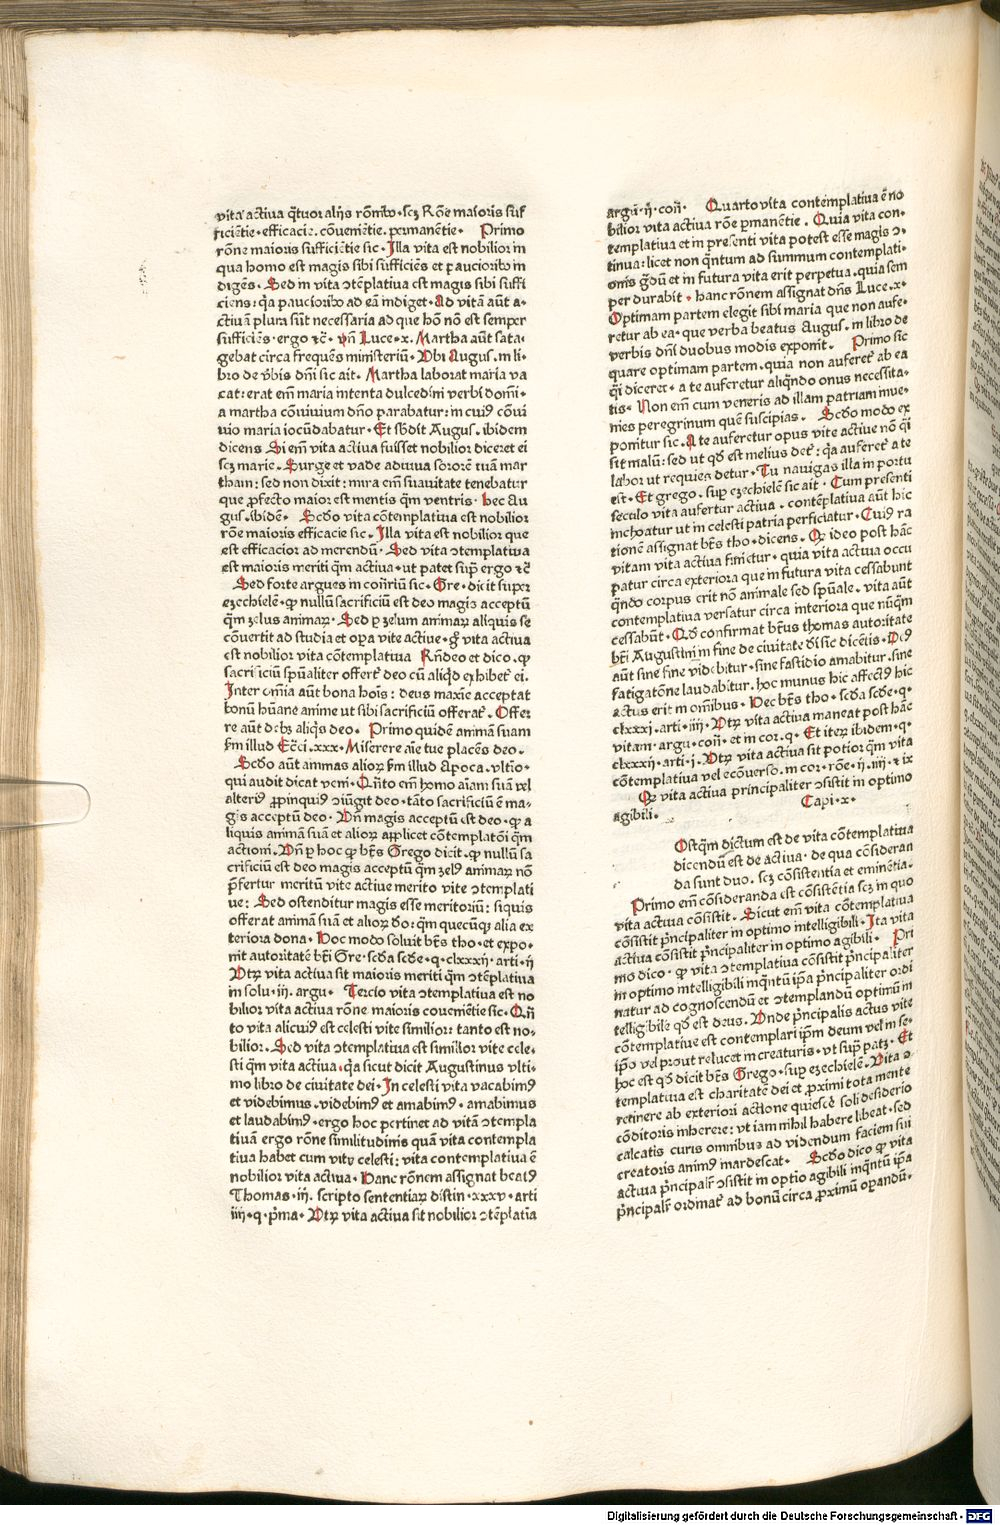 vita actiua q̄tuor alijs rōnibꝰ·scꝫ Rōne maioris suf
ficiētie·efficacie.cōueniētie.permanētie· Primo
rōne maioris sufficiētie sic· Illa vita est nobilior in
qua homo est magis sibi sufficiēs et paucioribꝰ in
digēs· Sed in vita ↄtēplatiua est magis sibi suffi
ciens: q̄a paucioribꝰ ad eā indiget· Ad vitā aūt a-
ctiuā plura sūt necessaria ad que hō nō est semper
sufficiēs·ergo ⁊c̄· vn̄ Luce·x. Martha aūt sata-
gebat circa frequēs ministeriū· Vbi Augus.in li-
bro de v̄bis dn̄i sic ait. Martha laborat maria va
cat: erat em̄ maria intenta dulcedini verbi domi-
a martha cōuiuium dn̄o parabatur: in cuiꝰ cōui
uio maria iocūdabatur· Et sb̄dit Augus. ibidem
dicens Si em̄ vita actiua fuisset nobilior diceret ei
scꝫ marie. Surge et vade adiuua sororē tuā mar
tham: sed non dixit: mira em̄ suauitate tenebatur
que ꝓfecto maior est mentis q̄m ventris· hec Au
gus.ibidē· Scd̄o vita cōtemplatiua est nobilior
rōne maioris efficacie sic. Illa vita est nobilior que
est efficacior ad merendū· Sed vita ↄtemplatiua
est maioris meriti q̄m actiua·ut patet sup̄ ergo ⁊c̄
Sed forte argues in con̄riū sic· Gre·dicit super
eꝫechielē·ꝙ nullū sacrificiū est deo magis acceptū
q̄m ꝫelus animaꝝ· Sed ꝑ ꝫelum animaꝝ aliquis se
cōuertit ad studia et oꝑa vite actiue·gͦ vita actiua
est nobilior vita cōtemplatiua Rn̄deo et dico.ꝙ
sacrificiū spūaliter offert̄ deo cū aliqͥd exhibet̄ ei.
Inter om̄ia aūt bona hoīs: deus maxīe acceptat
bonū hūane anime ut sibi sacrificiū offerat̄. Offer
re aūt debꝫ aliqͥs deo. Primo quidē animā suam
ẜm illud Ecc̄i.xxx· Miserere aīe tue placēs deo.
Scd̄o aūt animas alioꝝ ẜm illud Apoca.vltīo·
qui audit dicat veni· Qn̄to em̄ homo aīam suā vel
alteriꝰ ꝓpinquiꝰ ↄiūgit deo·tāto sacrificiū ē ma-
gis acceptū deo· Vn̄ magis acceptū est deo·ꝙ a
liquis animā suā et alioꝝ applicet cōtemplatōi q̄m
actioni. Vn̄ ꝑ hoc ꝙ bt̄s Grego dicit.ꝙ nullū sa
crificiū est deo magis acceptū q̄m ꝫelꝰ animaꝝ nō
p̄fertur meritū vite actiue merito vite ↄtemplati
ue: Sed ostenditur magis esse meritoriū: siquis
offerat animā suā et alioꝝ do: q̄m quecūqꝫ alia ex
teriora dona· Hoc modo soluit bt̄s tho·et expo-
nit autoritatē bt̄i Gre·scd̄a scd̄e·q·clxxxij·arti·ij
Vtꝝ vita actiua sit maioris meriti q̄m ↄtēplatiua
in solu·iij.argu· Tercio vita ↄtemplatiua est no
bilior vita actiua rōne maioris cōuenīetie sic·Qn̄
to vita alicuiꝰ est celesti vite similior: tanto est no-
bilior· Sed vita ↄtemplatiua est similior vite cele-
sti q̄m vita actiua.q̄a sicut dicit Augustinus vlti-
mo libro de ciuitate dei·In celesti vita vacabimꝰ
et videbimus.videbimꝰ et amabimꝰ· amabimus
et laudabimꝰ·ergo hoc pertinet ad vitā ↄtempla
tiuā ergo rōne similitudinis quā vita contempla
tiua habet cum vita celesti: vita contemplatiua ē
nobilior vita actiua· Hanc rōnem assignat beatꝰ
Thomas·iij. scripto sententiaꝝ distin·xxxv·arti
iiij·q·p̄ma· Vtꝝ vita actiua sit nobilior ↄtēplatīa
argu·ij·con̄· Quarto vita contemplatiua ē no
bilior vita actiua rōe permanētie. Quia vita con-
templatiua et in presenti vita potest esse magis ↄ-
tinua: licet non q̄ntum ad summum contemplati-
onis gͣdū et in futura vita erit perpetua.quia sem
per durabit · hanc rōnem assignat dn̄s Luce.x·
Optimam partem elegit sibi maria que non aufe-
retur ab ea·que verba beatus Augus.in libro de
verbis dn̄i duobus modis exponit. Primo sic
quare optimam partem.quia non auferet̄ ab ea
q̄i diceret·a te auferetur aliqn̄do onus necessita-
tis· Non em̄ cum veneris ad illam patriam inue-
nies peregrinum quē suscipias. Scd̄o modo ex
ponitur sic. A te auferetur opus vite actiue nō q̄i
sit malū: sed ut qd̄ est melius det̄: q̄a auferet̄ a te
labor ut requies detur· Tu nauigas illa in portu
est· Et grego. sup̄ eꝫechielē sic ait· Cum presenti
seculo vita aufertur actiua. contēplatiua aūt hic
inchoatur ut in celesti patria perficiatur· Cuiꝰ ra
tionē assignat bt̄s tho·dicens. Q ideo post hāc
vitam vita actiua finietur·quia vita actiua occu
patur circa exteriora que in futura vita cessabunt
qn̄do corpus erit nō animale sed spūale· vita aūt
contemplatiua versatur circa interiora que nūq̄m
cessabūt· Qd̄ confirmat bt̄us thomas autoritate
bt̄i Augustini in fine de ciuitate di sic dicētis· Deꝰ
aūt sine fine videbitur·sine fastidio amabitur.sine
fatigatōne laudabitur.hoc munus hic affectꝰ hic
actus erit in omnibus· Hec bt̄s tho·scd̄a scd̄e·q·
clxxxj·arti·iiij· Vtꝝ vita actiua maneat post hāc
vitam·argu·con̄·et in cor.q· Et iteꝝ ibidem·q·
clxxxij·arti·j· Vtꝝ vita actiua sit potior q̄m vita
cōtemplatiua vel ecōuerso.in cor·rōe·ij·iiij·⁊ ix
Q vita actiua principaliter ↄsistit in optimo
agibili· Capi·x·
Ostq̄m dictum est de vita cōtemplatiua
dicendū est de actiua· de qua cōsideran
da sunt duo. scꝫ cōsistentia et eminētia·
Primo em̄ cōsideranda est cōsistētia scꝫ in quo
vita actiua cōsistit· Sicut em̄ vita cōtemplatiua
cōsistit p̄ncipaliter in optimo intelligibili· Ita vita
actiua cōsistit p̄ncipaliter in optimo agibili· Pri
mo dico·ꝙ vita ↄtemplatiua cōsistit p̄ncipaliter
in optimo intelligibili inq̄ntū ip̄a p̄ncipaliter ordi
natur ad cognoscendū et ↄtemplandū optimū in
telligibile qd̄ est deus. Vnde p̄ncipalis actus vite
cōtemplatiue est contemplari ip̄m deum vel in se-
ip̄o vel prout relucet in creaturis·vt sup̄ patꝫ· Et
hoc est qd̄ dicit bt̄s Grego·sup̄ eꝫechielē· Vita ↄ-
templatiua est charitatē dei et ꝓximi tota mente
retinere ab exteriori actione quiescē soli desiderio
cōditoris inherere: vt iam nihil habere libeat·sed
calcatis curis omnibus ad videndum faciem sui
creatoris animꝰ inardescat· Scd̄o dico ꝙ vita
actiua p̄ncipalr̄ ↄsistit in optīo agibili inq̄ntū ip̄a
p̄ncipalr̄ ordinat̄ ad bonū circa ꝓximū oꝑandū·
Digitalisierung gefördert durch die Deutsche Forschungsgemeinschaft - DFG